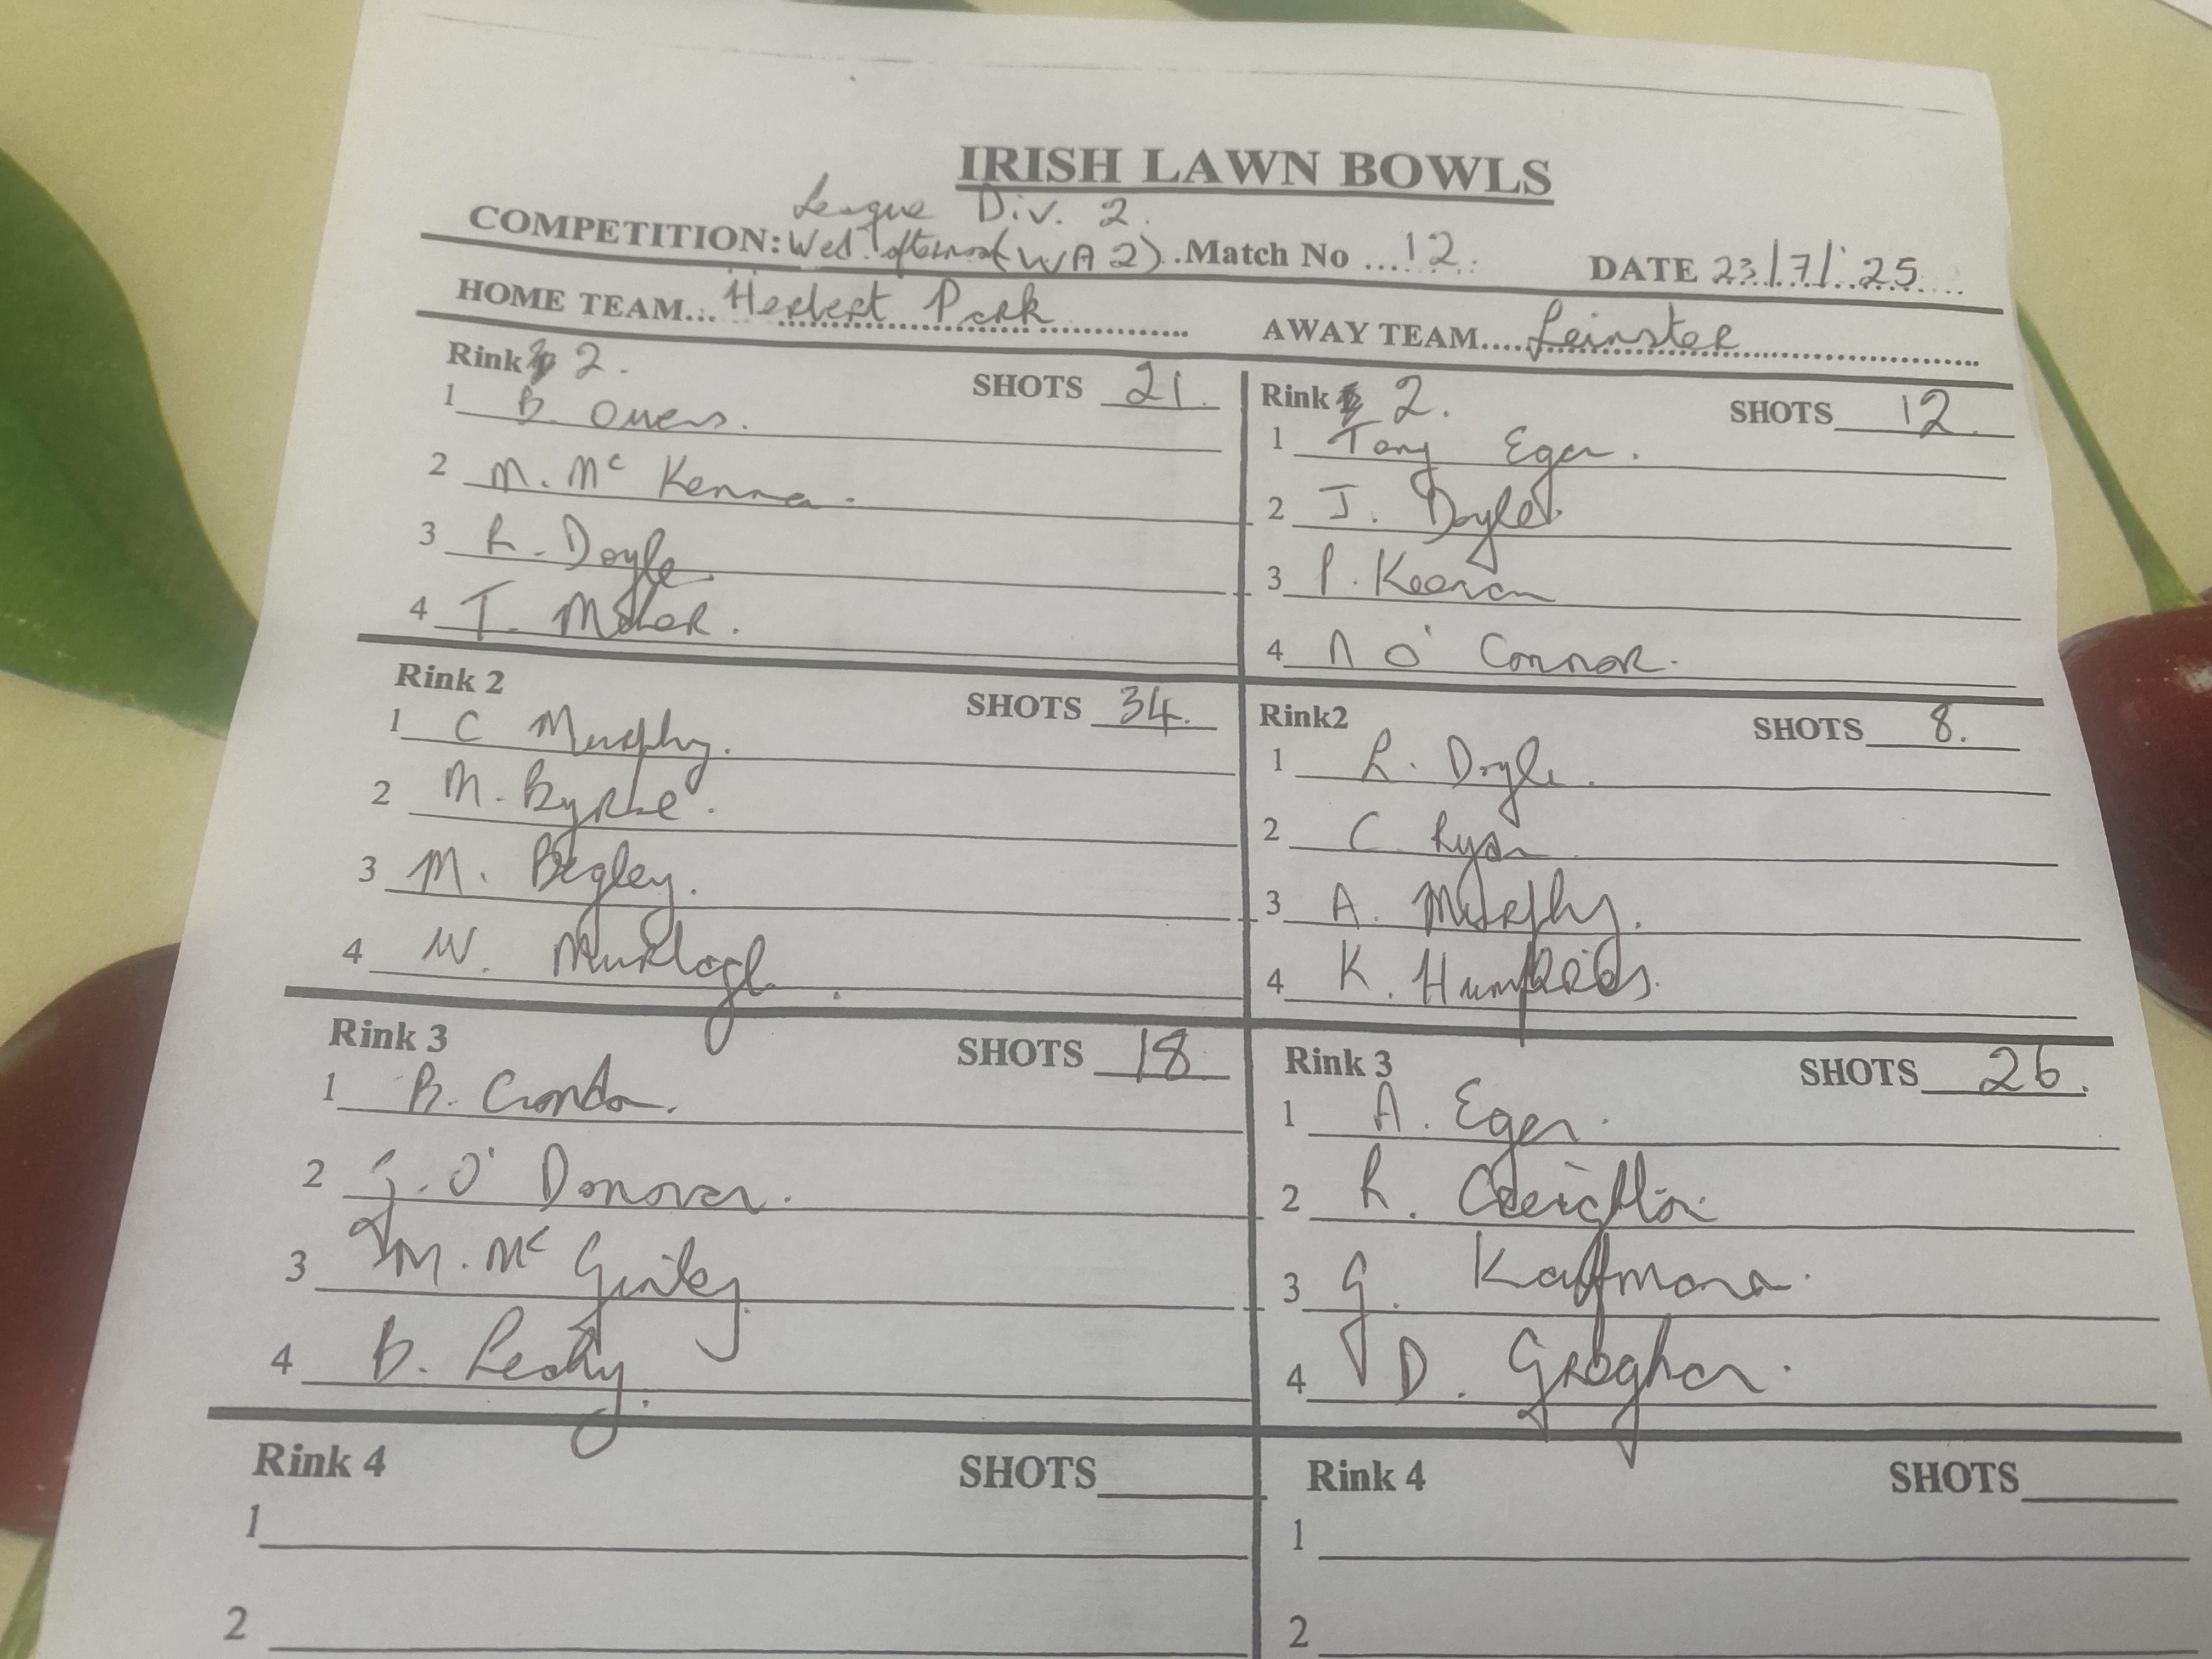 IRISH LAWN BOWLS
League Div. 2.
COMPETITION: Wed. (WA2). Match No ....12.. DATE 23/7/'25
HOME TEAM... Herbert Park AWAY TEAM.... Leinster
Rink 2. SHOTS 21.
1 B. Owens.
2 M. Mc Kenna.
3 R. Doyle
4 T.
Rink 2. SHOTS 12.
1 Tony Egan.
2 J. Doyle
3 P. Keenan
4 N O'Connor.
Rink 2 SHOTS 34.
1 C Murphy.
2 M. Byrne.
3 M. Begley.
4 W. Murtagh
Rink2 SHOTS 8.
1 R. Doyle.
2 C. Ryan
3 A. Murphy.
4 K. Humphries.
Rink 3 SHOTS 18
1 B.
2 G. O'Donovan.
3 M. Mc Ginley
4 B. Leahy.
Rink 3 SHOTS 26.
1 A. Egan.
2 R. Creighton.
3 G. Kaffmana.
4 D. Groghan.
Rink 4 SHOTS
1
2
Rink 4 SHOTS
1
2